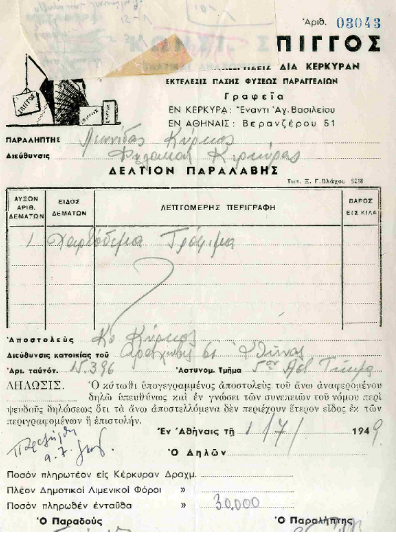 Ἀριθ. 03043
ΚΩΝΣΤ. ΣΠΙΓΓΟΣ
ΔΙΑ ΚΕΡΚΥΡΑΝ
ΕΚΤΕΛΕΣΙΣ ΠΑΣΗΣ ΦΥΣΕΩΣ ΠΑΡΑΓΓΕΛΙΩΝ
Γραφεῖα
ΕΝ ΚΕΡΚΥΡΑ: Ἔναντι Ἁγ. Βασιλείου
ΕΝ ΑΘΗΝΑΙΣ: Βερανζέρου 51
ΠΑΡΑΛΗΠΤΗΣ Λεωνίδας Κύρκος
Διεύθυνσις Φυλακαὶ Κερκύρας
ΔΕΛΤΙΟΝ ΠΑΡΑΛΑΒΗΣ
Τυπ. Σ. Γ. Βλάχου
ΑΥΞΩΝ ΑΡΙΘ. ΔΕΜΑΤΩΝ ΕΙΔΟΣ ΔΕΜΑΤΩΝ ΛΕΠΤΟΜΕΡΗΣ ΠΕΡΙΓΡΑΦΗ ΒΑΡΟΣ ΕΙΣ ΚΙΛΑ
1 Χαρτόδεμα Τρόφιμα
Ἀποστολεὺς Κα Κύρκου
Διεύθυνσις κατοικίας τοῦ 61 Ἀθήνας
Ἀρι. ταὐτότ. 15.396 Ἀστυνομ. Τμῆμα 5ον
ΔΗΛΩΣΙΣ. Ὁ κάτωθι ὑπογεγραμμένος ἀποστολεὺς τοῦ ἄνω ἀναφερομένου
δηλῶ ὑπευθύνως καὶ ἐν γνώσει τῶν συνεπειῶν τοῦ νόμου περὶ
ψευδοῦς δηλώσεως ὅτι τὰ ἄνω ἀποστελλόμενα δὲν περιέχουν ἕτερον εἶδος ἐκ τῶν
περιγραφομένων ἢ ἐπιστολήν.
Ἐν Ἀθήναις τῇ 1/7/ 1949
Ὁ Δηλῶν
Ποσόν πληρωτέον εἰς Κέρκυραν Δραχμ.
Πλέον Δημοτικοὶ Λιμενικοὶ Φόροι »
Ποσόν πληρωθὲν ἐνταῦθα » 30,000
Ὁ Παραδοὺς Ὁ Παραλήπτης